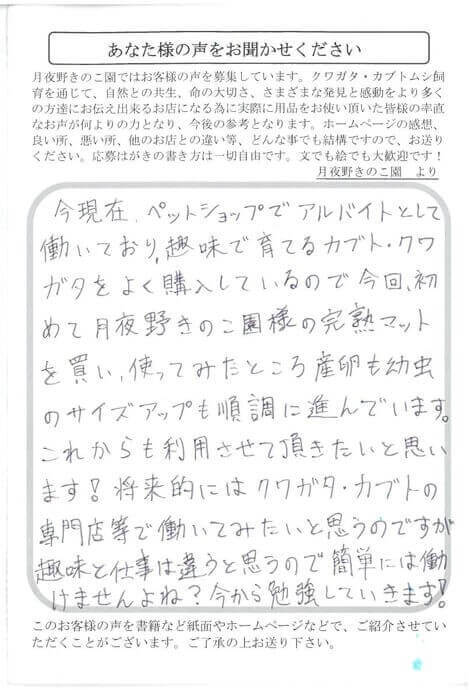 あなた様の声をお聞かせください
月夜野きのこ園ではお客様の声を募集しています。クワガタ・カブトムシ飼
育を通じて、自然との共生、命の大切さ、さまざまな発見と感動をより多く
の方達にお伝え出来るお店になる為に実際に用品をお使い頂いた皆様の率直
なお声が何よりの力となり、今後の参考となります。ホームページの感想、
良い所、悪い所、他のお店との違い等、どんな事でも結構ですので、お送り
ください。応募はがきの書き方は一切自由です。文でも絵でも大歓迎です！
月夜野きのこ園　より
今現在、ペットショップでアルバイトとして
働いており、趣味で育てるカブト・クワ
ガタをよく購入しているので今回、初
めて月夜野きのこ園様の完熟マット
を買い、使ってみたところ産卵も幼虫
のサイズアップも順調に進んでいます。
これからも利用させて頂きたいと思い
ます！将来的にはクワガタ・カブトの
専門店等で働いてみたいと思うのですが
趣味と仕事は違うと思うので簡単には働
けませんよね？今から勉強していきます！
このお客様の声を書籍など紙面やホームページなどで、ご紹介させてい
ただくことがございます。ご了承の上お送り下さい。